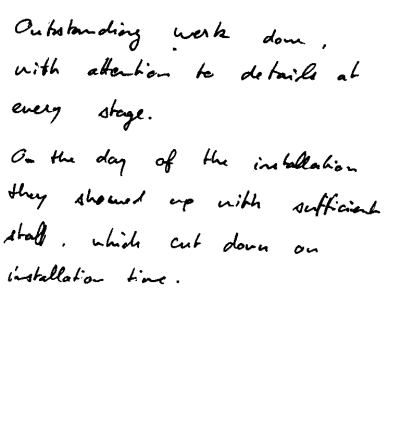 Outstanding work done,
with attention to details at
every stage.
On the day of the installation
they showed up with sufficient
staff, which cut down on
installation time.